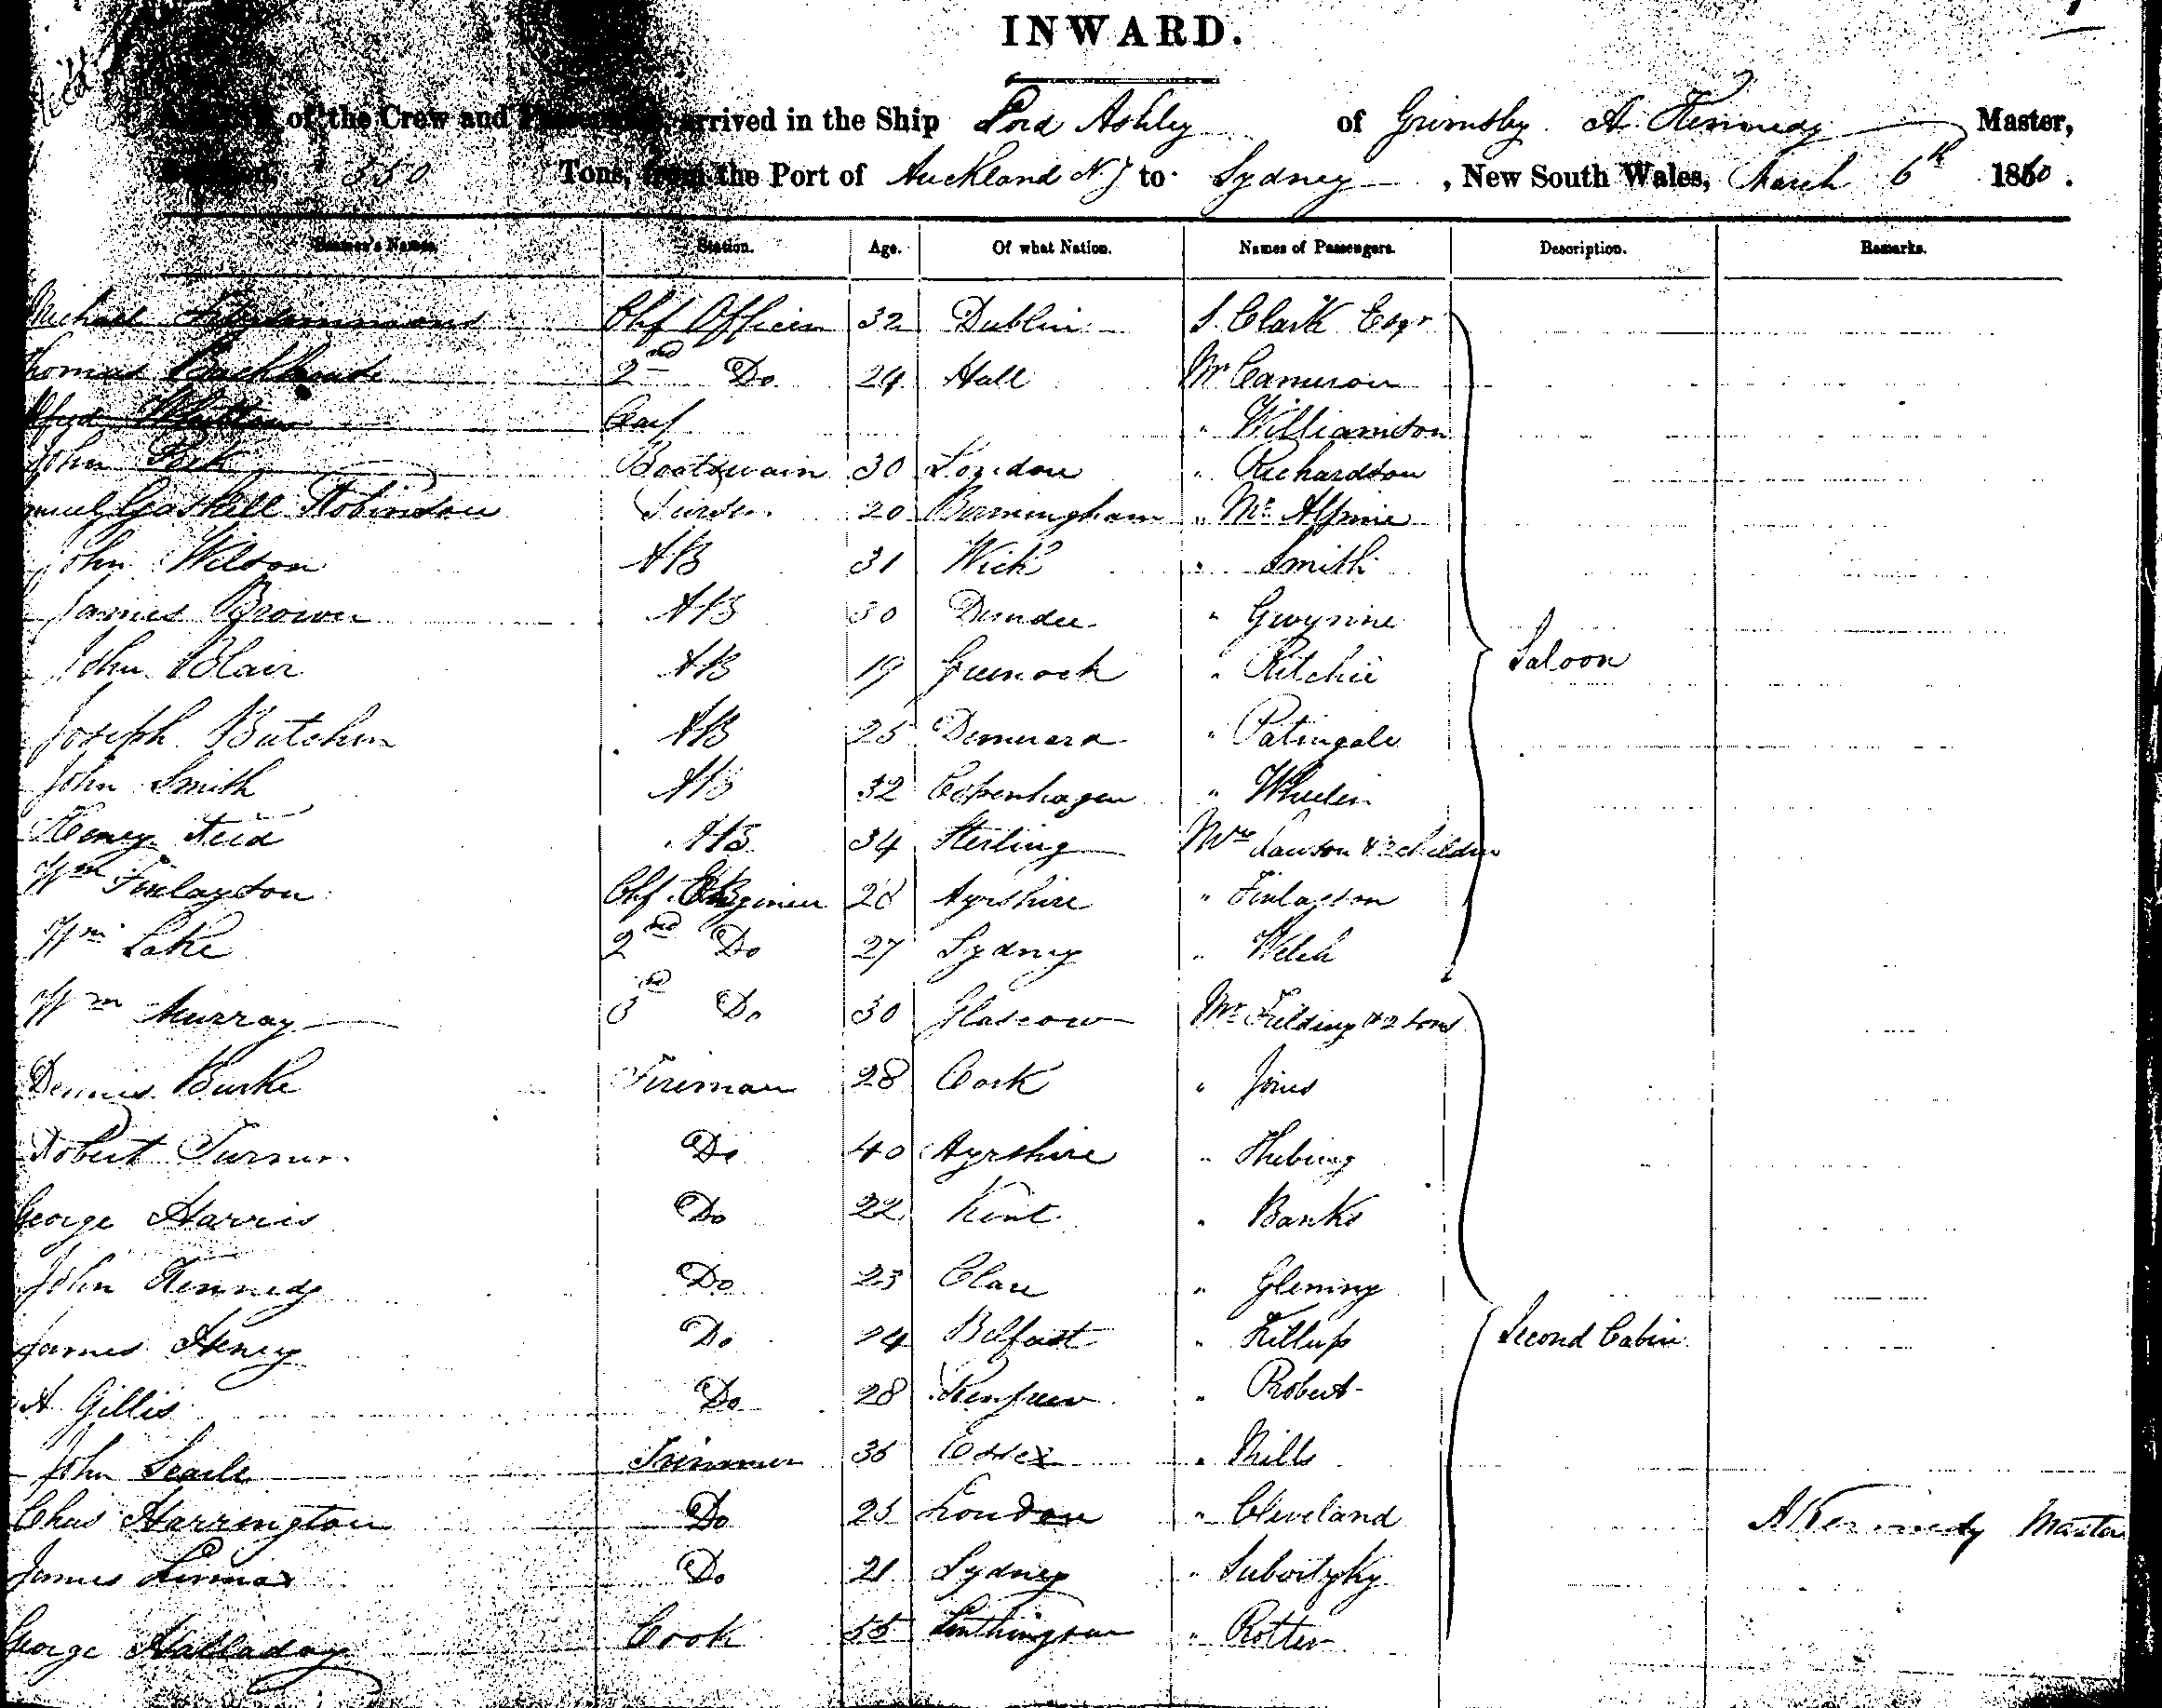 INWARD.
of the Crew and arrived in the Ship Lord Ashley of Grimsby A Kennedy Master,
550 Tons, from the Port of Auckland N Z to Sydney, New South Wales, March 6th 1860.
Seamen's Names. Station. Age. Of what Nation. Names of Passengers. Description. Remarks.
Michael Fitzsimmons Chf Officer 32 Dublin S. Clark Esqr
Thomas 2nd Do 24 Hull Mr Cameron
" Williamson
John Boatswain 30 London " Richardson
Gaskell Robinson 20 Birmingham " Mc Alpine
John Wilson AB 31 Wick " Smith
James Brown AB 30 Dundee " Gwynne
John Blair AB 19 Greenock " Ritchie Saloon
Joseph Butcher AB 25 Demerara " Patingale
John Smith AB 32 Copenhagen " Wheelen
Henry Reid AB 34 Sterling Mrs Lawson & 2 children
Wm Finlayson Chf Engineer 28 Ayrshire " Finlasson
Wm Lake 2nd Do 27 Sydney " Welch
Wm Murray 3rd Do 30 Glascow Mr Fielding & 2 sons
Dennis Burke Fireman 28 Cork " Jones
Robert Turner Do 40 Ayrshire
George Harris Do 22 Kent " Banks
John Kennedy Do 23 Clare " Glenny
James Henry Do 24 Belfast " Killup Second Cabin
A Gillis Do 28 Renfrew " Robert
John Searle Trimmer 36 Essex " Mills
Chas Harrington Do 25 London " Cleveland A Kennedy Master
James Do 21 Sydney
George Halladay Cook 55 " Rotter